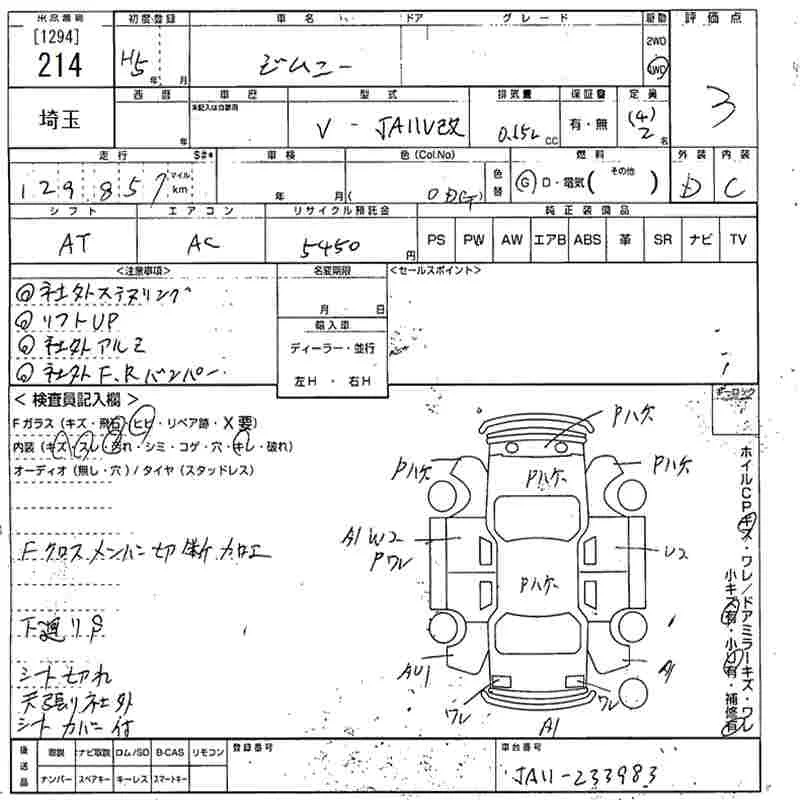 [1294]
214
埼玉
初度登録
H5
年 月
車名
ジムニー
ドア
グレード
駆動
2WD
4WD
評価点
3
西暦
年
車歴
未記入は自家用
型式
V - JA11V改
排気量
cc
保証書
有・無
定員
(4)
2
名
走行
129857
マイル
km
車検
年 月
色(Col.No)
色替
燃料
G D・電気( その他 )
外装
D
内装
C
シフト
AT
エアコン
AC
リサイクル預託金
5450
円
純正装備品
PS PW AW エアB ABS 革 SR ナビ TV
<注意事項>
社外ステアリング
リフトUP
社外アルミ
社外F、Rバンパー
名変期限
月 日
輸入車
ディーラー・並行
左H ・ 右H
<セールスポイント>
キーロック
<検査員記入欄>
Fガラス (キズ・飛石・ヒビ・リペア跡・X要)
内装 (キズ・スレ・汚れ・シミ・コゲ・穴・キレ・破れ)
オーディオ (無し・穴) / タイヤ (スタッドレス)
Fクロスメンバー切断加工
下廻りS
シート切れ
天張り社外
シートカバー付
Pハゲ
Pハゲ
Pハゲ
Pハゲ
A1 W2
Pワレ
Pハゲ
U2
AU1
A1
ワレ
ワレ
A1
ホイルCPキズ・ワレ/ドアミラーキズ・ワレ
小キズ有・小U有・補修有
後送品
取説 ナビ取説 ロム/SD B-CAS リモコン
ナンバー スペアキー キーレス スマートキー
登録番号
車台番号
JA11-233983